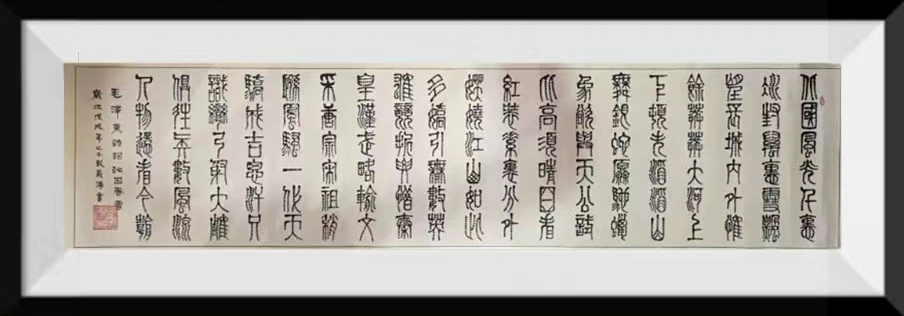 北國風光千裏
冰封萬裏雪飄
望長城內外惟
餘莽莽大河上
下頓失滔滔山
舞銀蛇原馳蠟
象欲與天公試
比高須晴日看
紅裝素裹分外
妖嬈江山如此
多嬌引無數英
雄競折腰惜秦
皇漢武略輸文
采唐宗宋祖稍
遜風騷一代天
驕成吉思汗只
識彎弓射大雕
俱往矣數風流
人物還看今朝
毛澤東詩詞沁園春雪
歲次戊戌年之冬書